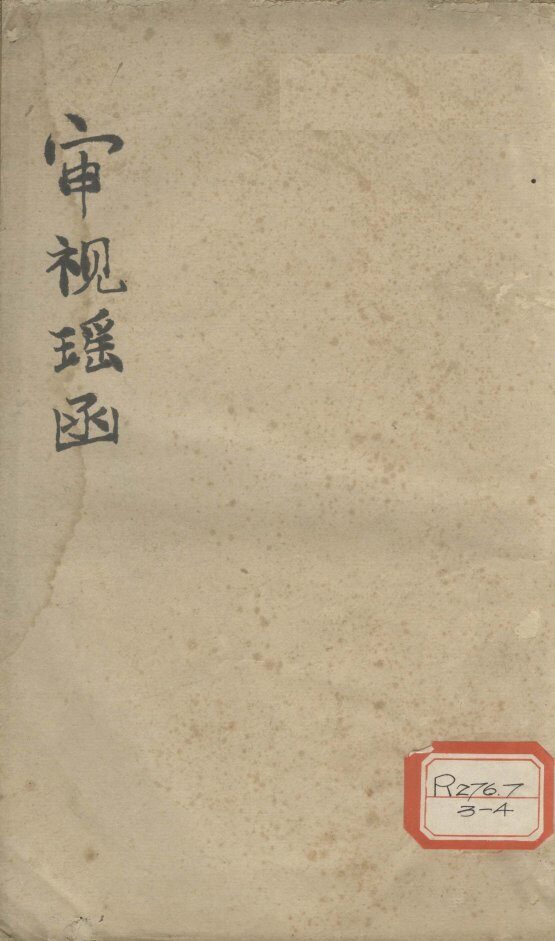 审视瑶函
R276.7
3-4